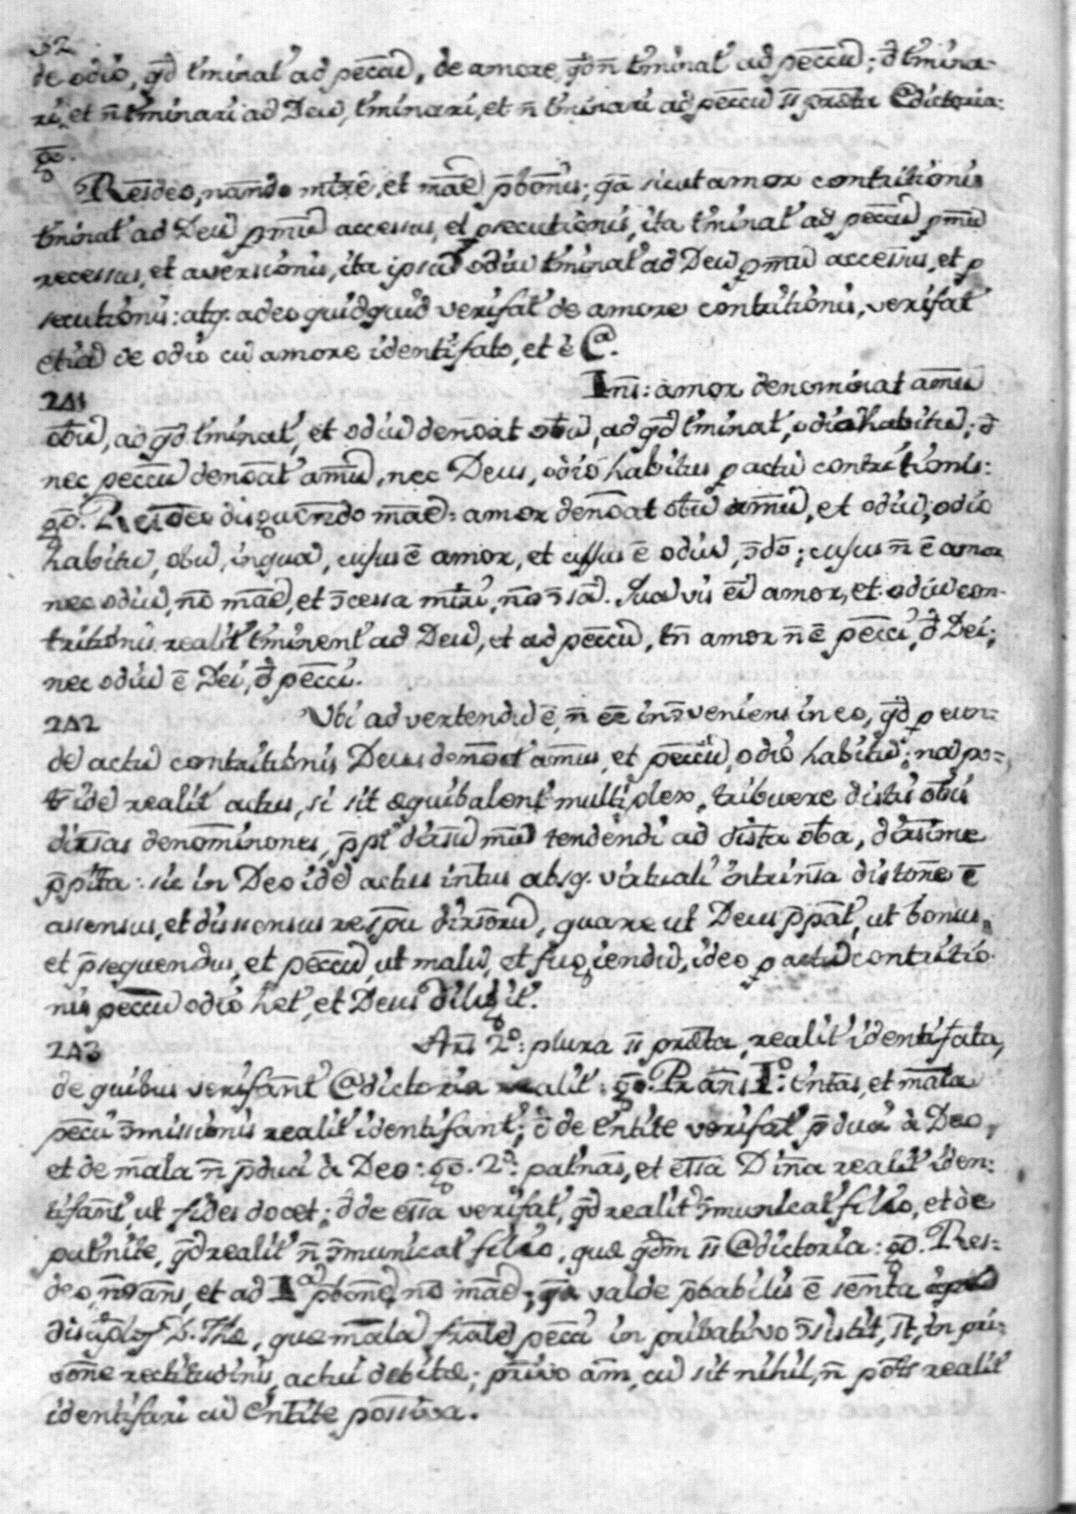 32
de odio, qd̄ t'minat' ad pecc̄ū, de amore, qd̄ n̄ t'minat' ad pecc̄ū; s̄d t'mina-
ri, et n̄ t'minari ad Deū, t'minari, et n̄ t'minari ad pecc̄ū st̄ prædta Cdictoria:
gō.
Resdeo, nando minrē, et māē p̄bonis; q̄a sicut amor contritionis
t'minat' ad Deū p mūm accessus, et psecutionis, ita t'minat' ad pecc̄ū p mūm
recessus, et aversionis, ita ipsū odiū t'minat' ad Deū p mūm accessus, et p
secutionis: atq. adeo quidquid verifat' de amore contritionis, verifat'
etiā de odio cū amore identifato, et è C@.
241 Ins̄: amor denominat amūm
obū, ad qd̄ t'minat', et odiū denōat obū, ad qd̄ t'minat', odio habitū; s̄d
nec pecc̄ū denōat' amūm, nec Deus, odio habitus p actū contritionis:
gō. Resdeo disguendo māē: amor denōat obū amūm, et odiū, odio
habitū, obū, inquā, cujus ē amor, et cujus ē odiū, Cdō; cujus n̄ ē amor
nec odiū, nō māē, et Ccessa mīri, nō Csā. Quavis eī amor, et odiū con-
tritionis realit' t'minent' ad Deū, et ad pecc̄ū, tn̄ amor n̄ ē pecc̄i, s̄d Dei;
nec odiū ē Dei, s̄d pecc̄i.
242 Vbi advertendū ē, n̄ eē inCveniens in eo, qd̄ p eun-
dē actū contritionis Deus denōat' amūs, et pecc̄ū, odio habitū; nā po-
t' idē realit' actus, si sit æquibalent' multiplex, tribuere distis obis
divsas denominones, p̄pt' divsū mūm tendendi ad distā obā, divsimē
p̄pitā: sic in Deo idē actus intus absq. virtuali intrinsā distonē ē
assensus, et dissensus respu divsorū, quare ut Deus p̄pat', ut bonus,
et p̄sequendus, et pecc̄ū, ut malū, et fugiendū, ideo p actū contritio-
nis pecc̄ū odio het', et Deus diligit'.
243 Ars̄ 2º: plura st̄ prædta, realit' identifata,
de quibus verifant' Cdictoria realit': gō. Pr ans 1º: entas, et māla
pecc̄i Cmissionis realit' identifant'; s̄d de entite verifat' p̄duci à Deo,
et de māla n̄ p̄duci à Deo: gō. 2º: patnas, et essā Dinā realit' iden-
tifant', ut fides docet; s̄d de essā verifat', qd̄ realit' Cmunicat' filio, et de
patnite, qd̄ realit' n̄ Cmunicat' filio, quæ qd̄m st̄ Cdictoria: gō. Res-
deo, n̄do ans, et ad 1ª p̄bonē, nō māē, q̄a valde p̄babilis ē sentā apud
discip̄los D. Thæ, quæ mālā frālē pecc̄i in pribativo Csistit, st̄, in pri-
onē rectitudinis actui debitæ; privo am̄, cū sit nihil, n̄ potēs realit'
identifari cū entite possitiva.